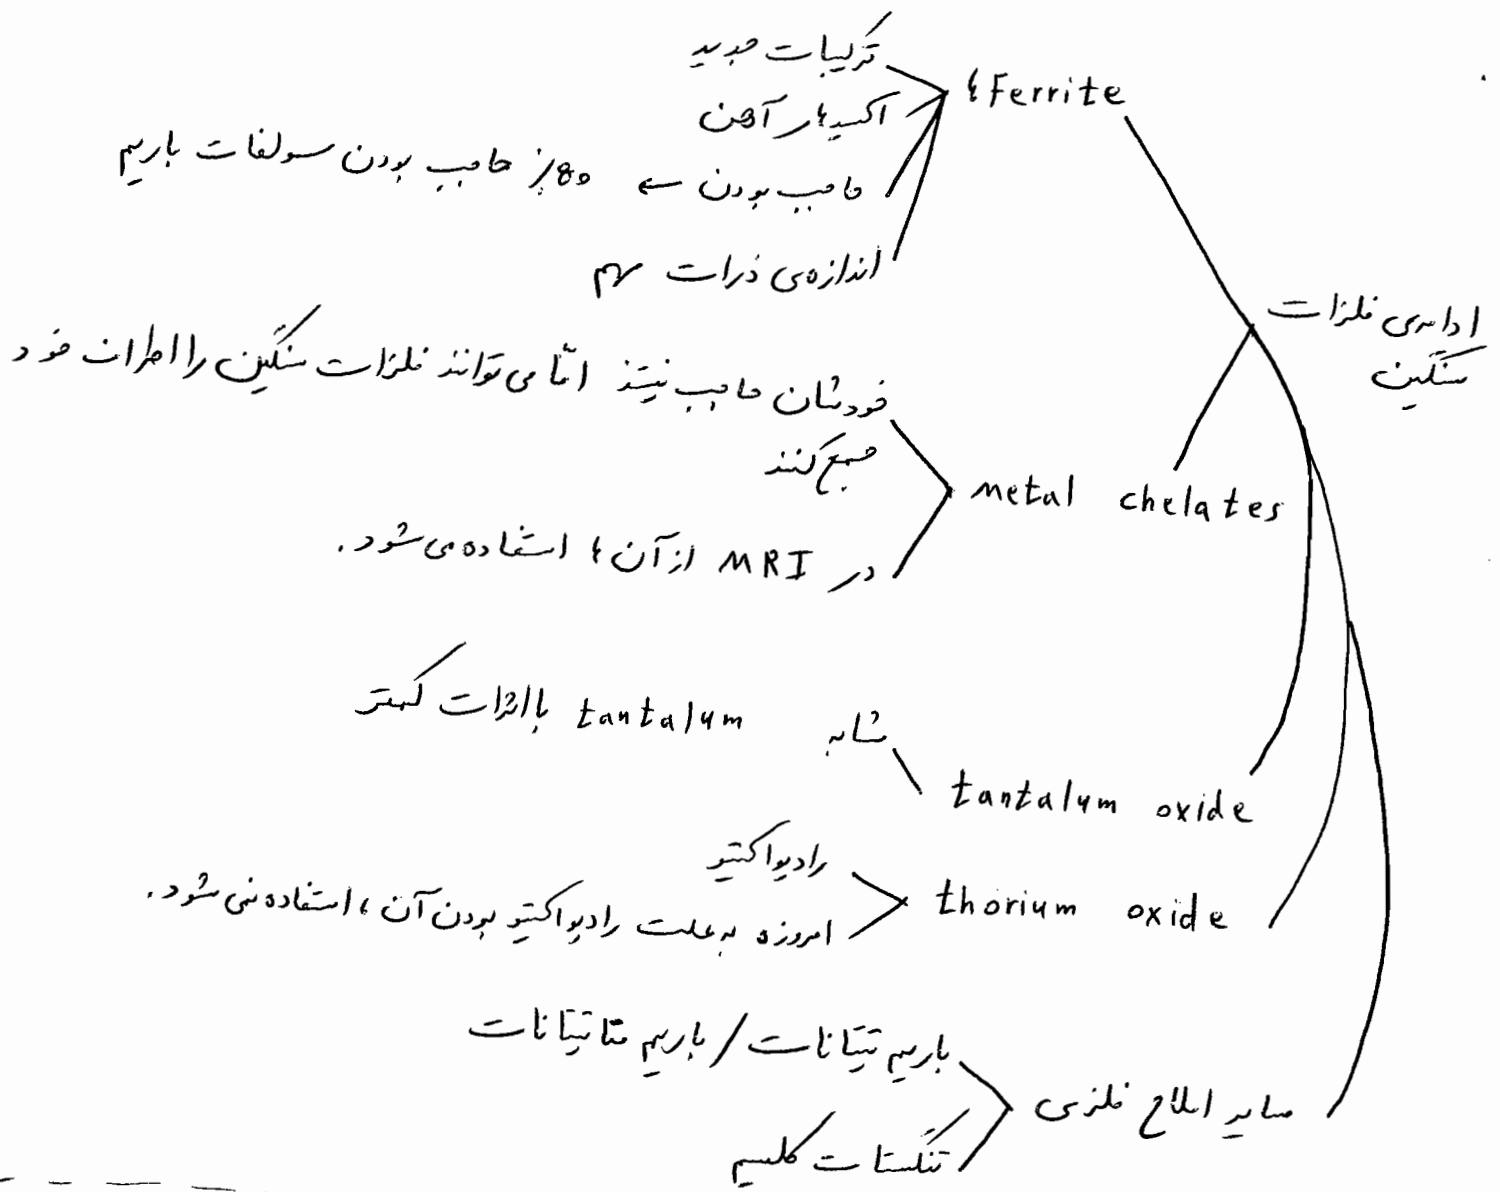 ادامه‌ی فلزات
سنگین
Ferrite ها
ترکیبات جدید
اکسیدهای آهن
حاجب بودن ← ۵۰٪ حاجب بودن سولفات باریم
اندازه‌ی ذرات مهم
metal chelates
خودشان حاجب نیستند امّا می‌توانند فلزات سنگین را اطراف خود
جمع کنند
در MRI از آن‌ها استفاده می‌شود.
tantalum oxide
مشابه tantalum با اثرات کمتر
thorium oxide
رادیواکتیو
امروزه به علت رادیواکتیو بودن آن، استفاده نمی‌شود.
سایر املاح فلزی
باریم تیتانات / باریم متاتیتانات
تنگستات کلسیم